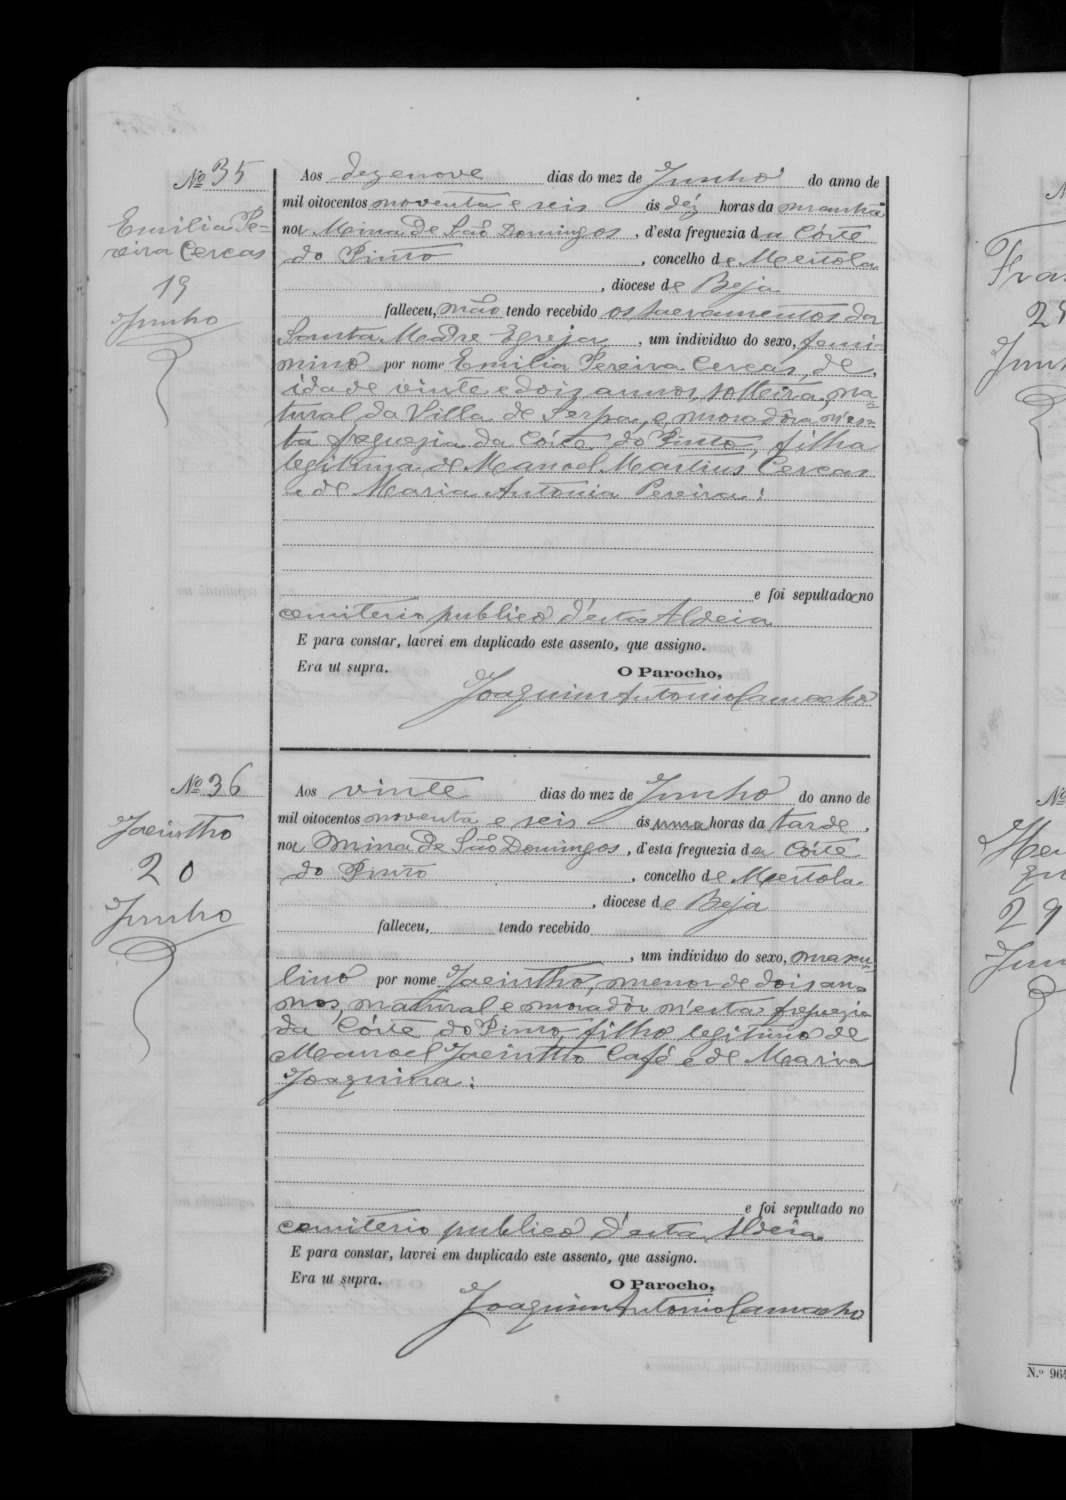 Nº 35
Emilia Pe=
reira Cercas
19
Junho
Aos dezenove dias do mez de Junho do anno de
mil oitocentos noventa e seis ás déz horas da manhã
na Mina de São Domingos, d'esta freguezia da Côrte
do Pinto, concelho de Mertola
, diocese de Beja
falleceu, não tendo recebido os sacramentos da
Santa Madre Egreja, um individuo do sexo, femi-
nino por nome Emilia Pereira Cercas, de
idade vinte e dois annos, solteira, na-
tural da Villa de Serpa, e moradôra n'es-
ta freguezia da Côrte do Pinto, filha
legitima de Manoel Martins Cercas
e de Maria Antonia Pereira:
e foi sepultado no
cemiterio publico d'esta Aldeia.
E para constar, lavrei em duplicado este assento, que assigno.
Era ut supra.
O Parocho,
Joaquim Antonio Camacho
Nº 36
Jacintho
20
Junho
Aos vinte dias do mez de Junho do anno de
mil oitocentos noventa e seis ás uma horas da tarde,
na Mina de São Domingos, d'esta freguezia da Côrte
do Pinto, concelho de Mertola
, diocese de Beja
falleceu, tendo recebido
, um individuo do sexo, mascu-
lino por nome Jacintho, menor de dois an-
nos, natural e moradôr n'esta freguezia
da Côrte do Pinto, filho legitimo de
Manoel Jacintho Café e de Maria
Joaquina:
e foi sepultado no
cemiterio publico d'esta Aldeia.
E para constar, lavrei em duplicado este assento, que assigno.
Era ut supra.
O Parocho,
Joaquim Antonio Camacho